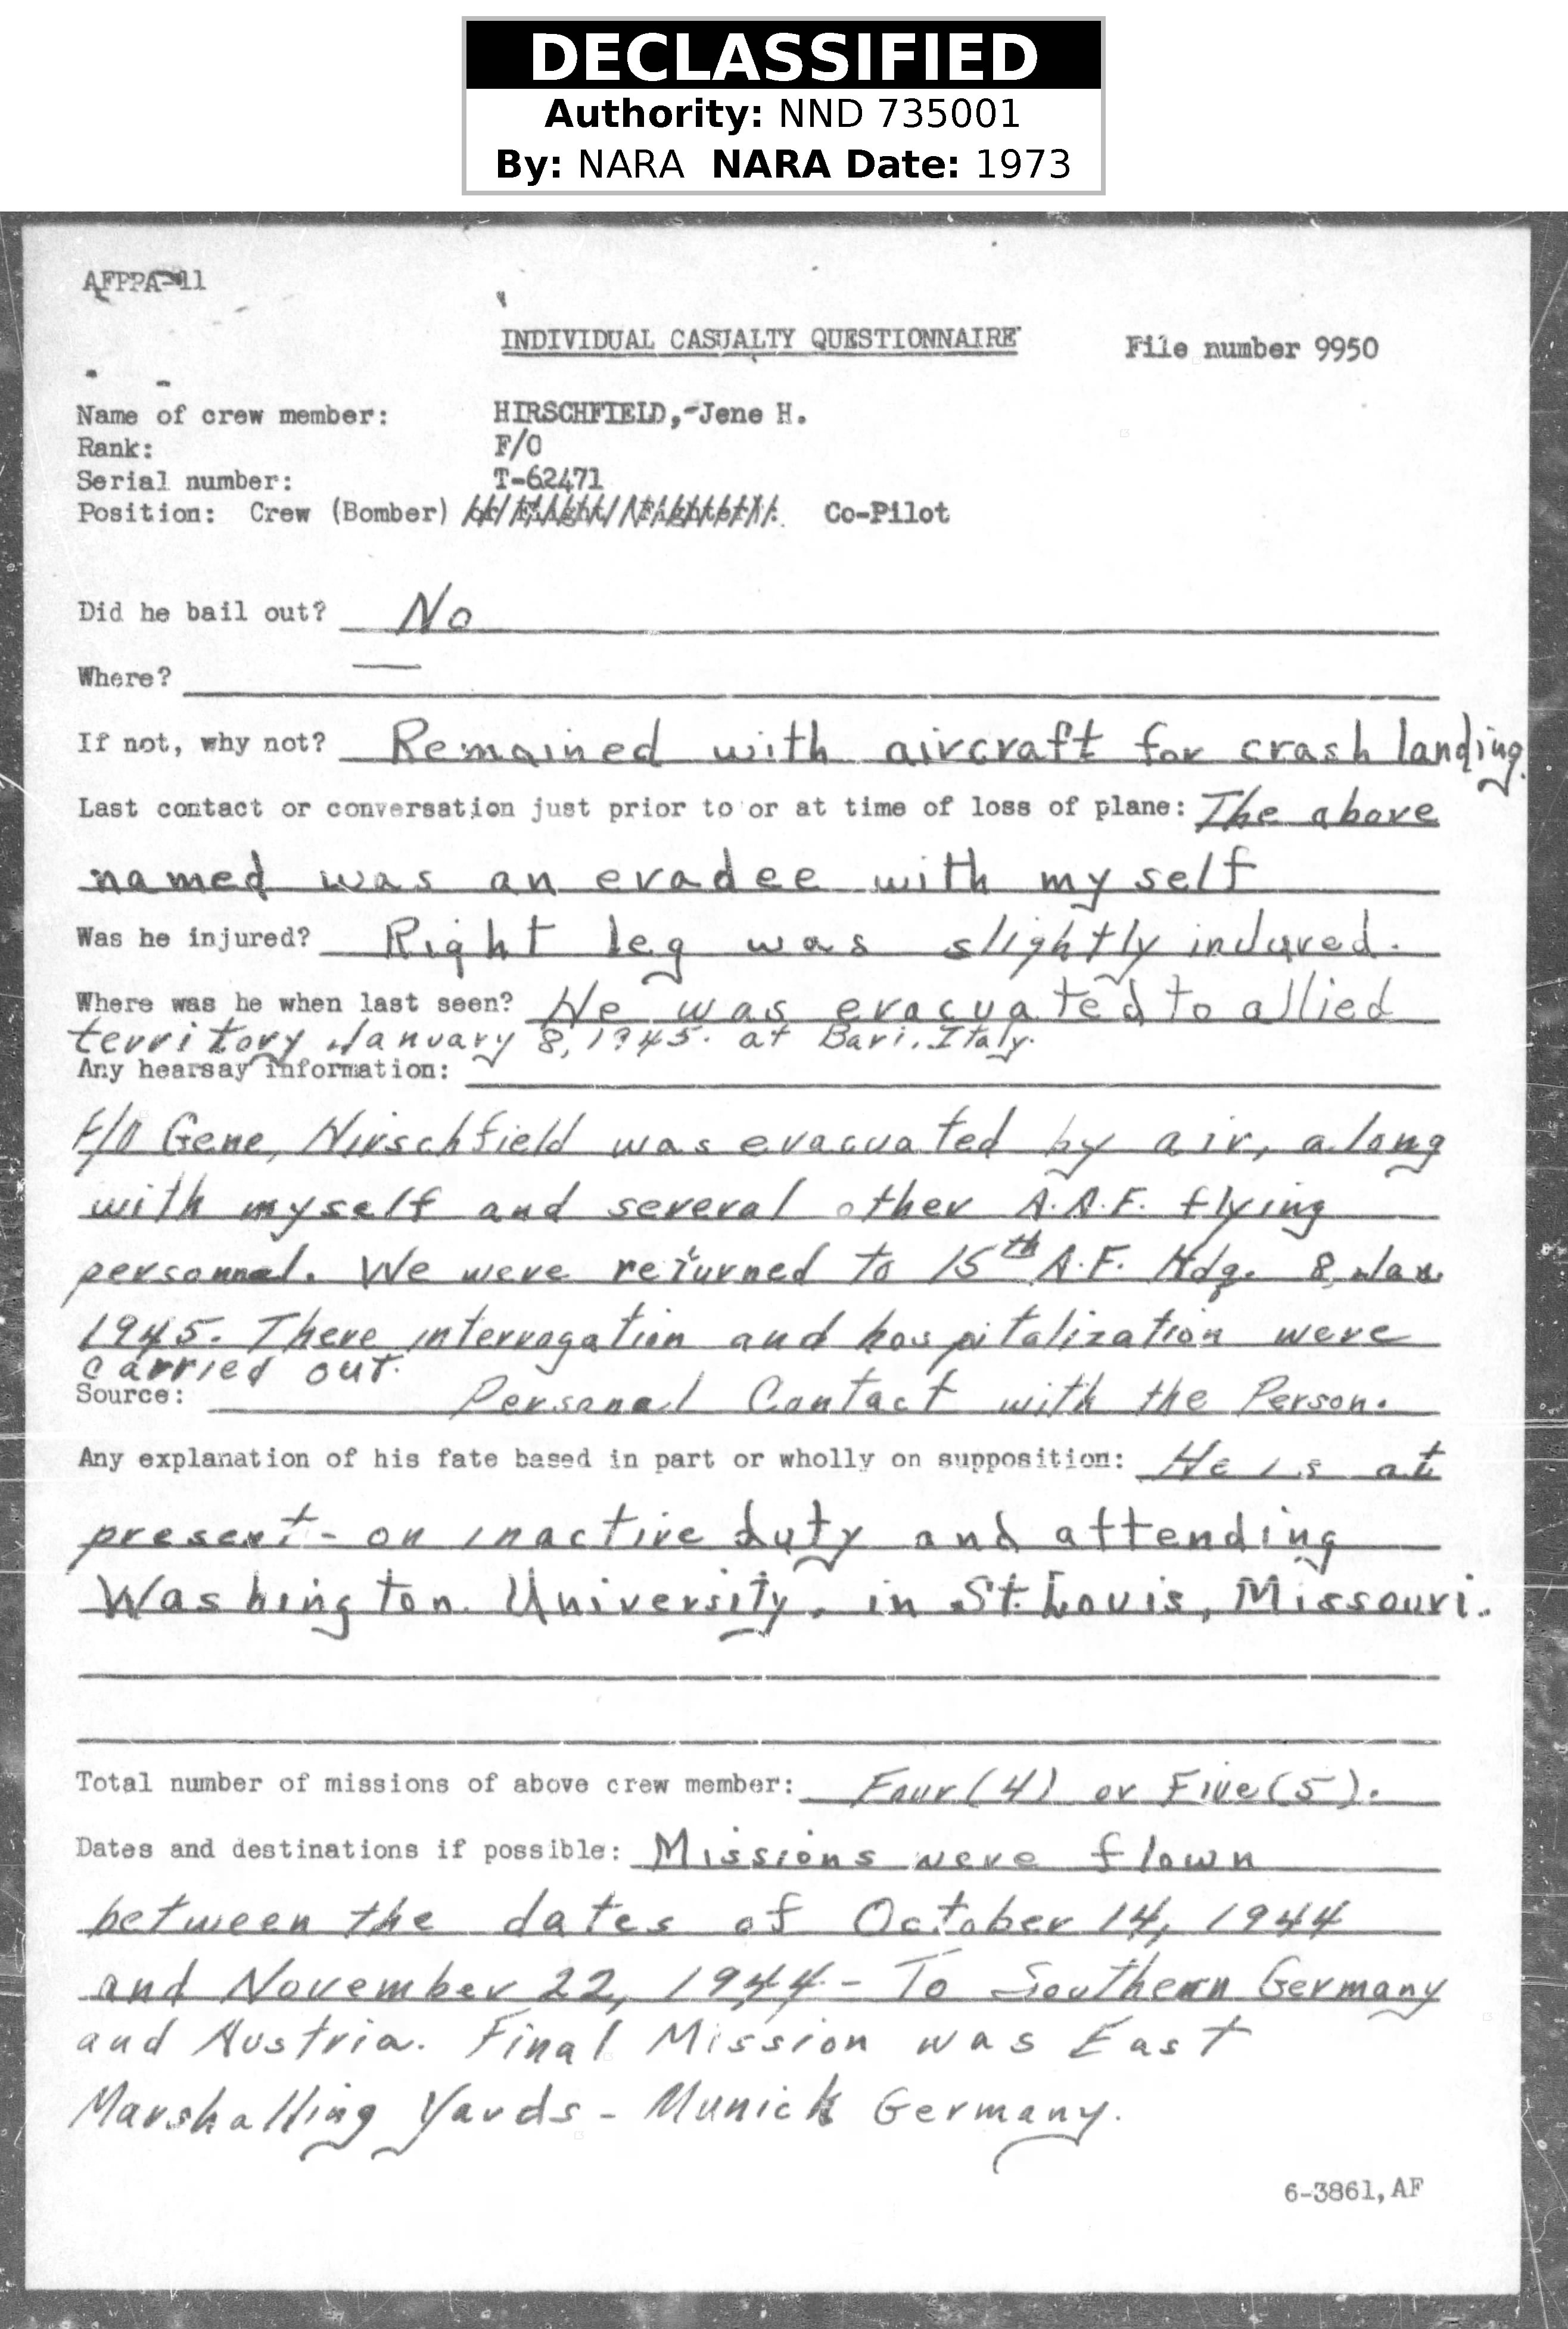 DECLASSIFIED
Authority: NND 735001
By: NARA NARA Date: 1973
AFPPA-11
INDIVIDUAL CASUALTY QUESTIONNAIRE
File number 9950
Name of crew member: HIRSCHFIELD,-Jene H.
Rank: F/O
Serial number: T-62471
Position: Crew (Bomber) Co-Pilot
Did he bail out? No
Where? —
If not, why not? Remained with aircraft for crash landing.
Last contact or conversation just prior to or at time of loss of plane: The above
named was an evadee with my self
Was he injured? Right leg was slightly indured.
Where was he when last seen? He was evacuated to allied
territory January 8, 1945. at Bari, Italy.
Any hearsay information:
F/O Gene, Hirschfield was evacuated by air, along
with myself and several other A.A.F. flying
personnal. We were returned to 15th A.F. Hdq. 8, Jan.
1945. There interrogation and hospitalization were
carried out.
Source: Personal Contact with the Person.
Any explanation of his fate based in part or wholly on supposition: He is at
present - on inactive duty and attending
Washington University, in St. Louis, Missouri.
Total number of missions of above crew member: Four (4) or Five (5).
Dates and destinations if possible: Missions were flown
between the dates of October 14, 1944
and November 22, 1944 - To Southern Germany
and Austria. Final Mission was East
Marshalling Yards - Munich Germany.
6-3861, AF